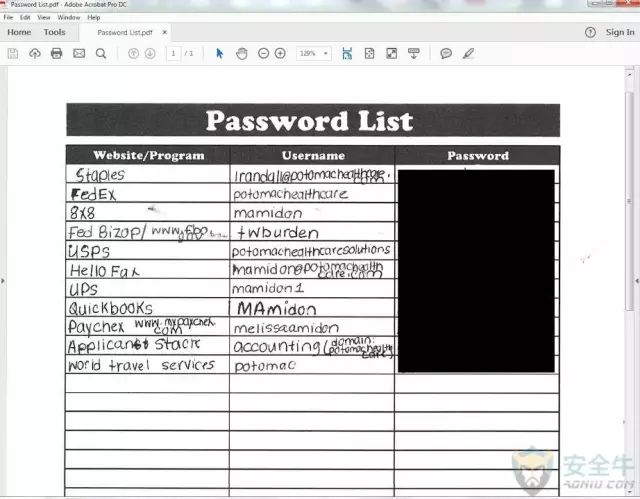 Password List.pdf - Adobe Acrobat Pro DC
File Edit View Window Help
Home Tools Password List.pdf × Sign In
1 / 1 129%
Password List
Website/Program Username Password
Staples lrandall@potomachealthcare.
FedEx potomachealthcare
8x8 mamidon
Fed Bizop/ www.fbo. gov twburden
USPS potomachealthcaresolutions
Hello Fax mamidon@potomachealthcare.com
UPS mamidon1
Quickbooks MAmidon
Paychex www.mypaychex.com melissaamidon
Applicant Stack accounting (domain: potomachealthcare)
world travel services potomac
安全牛
AQNIU.COM